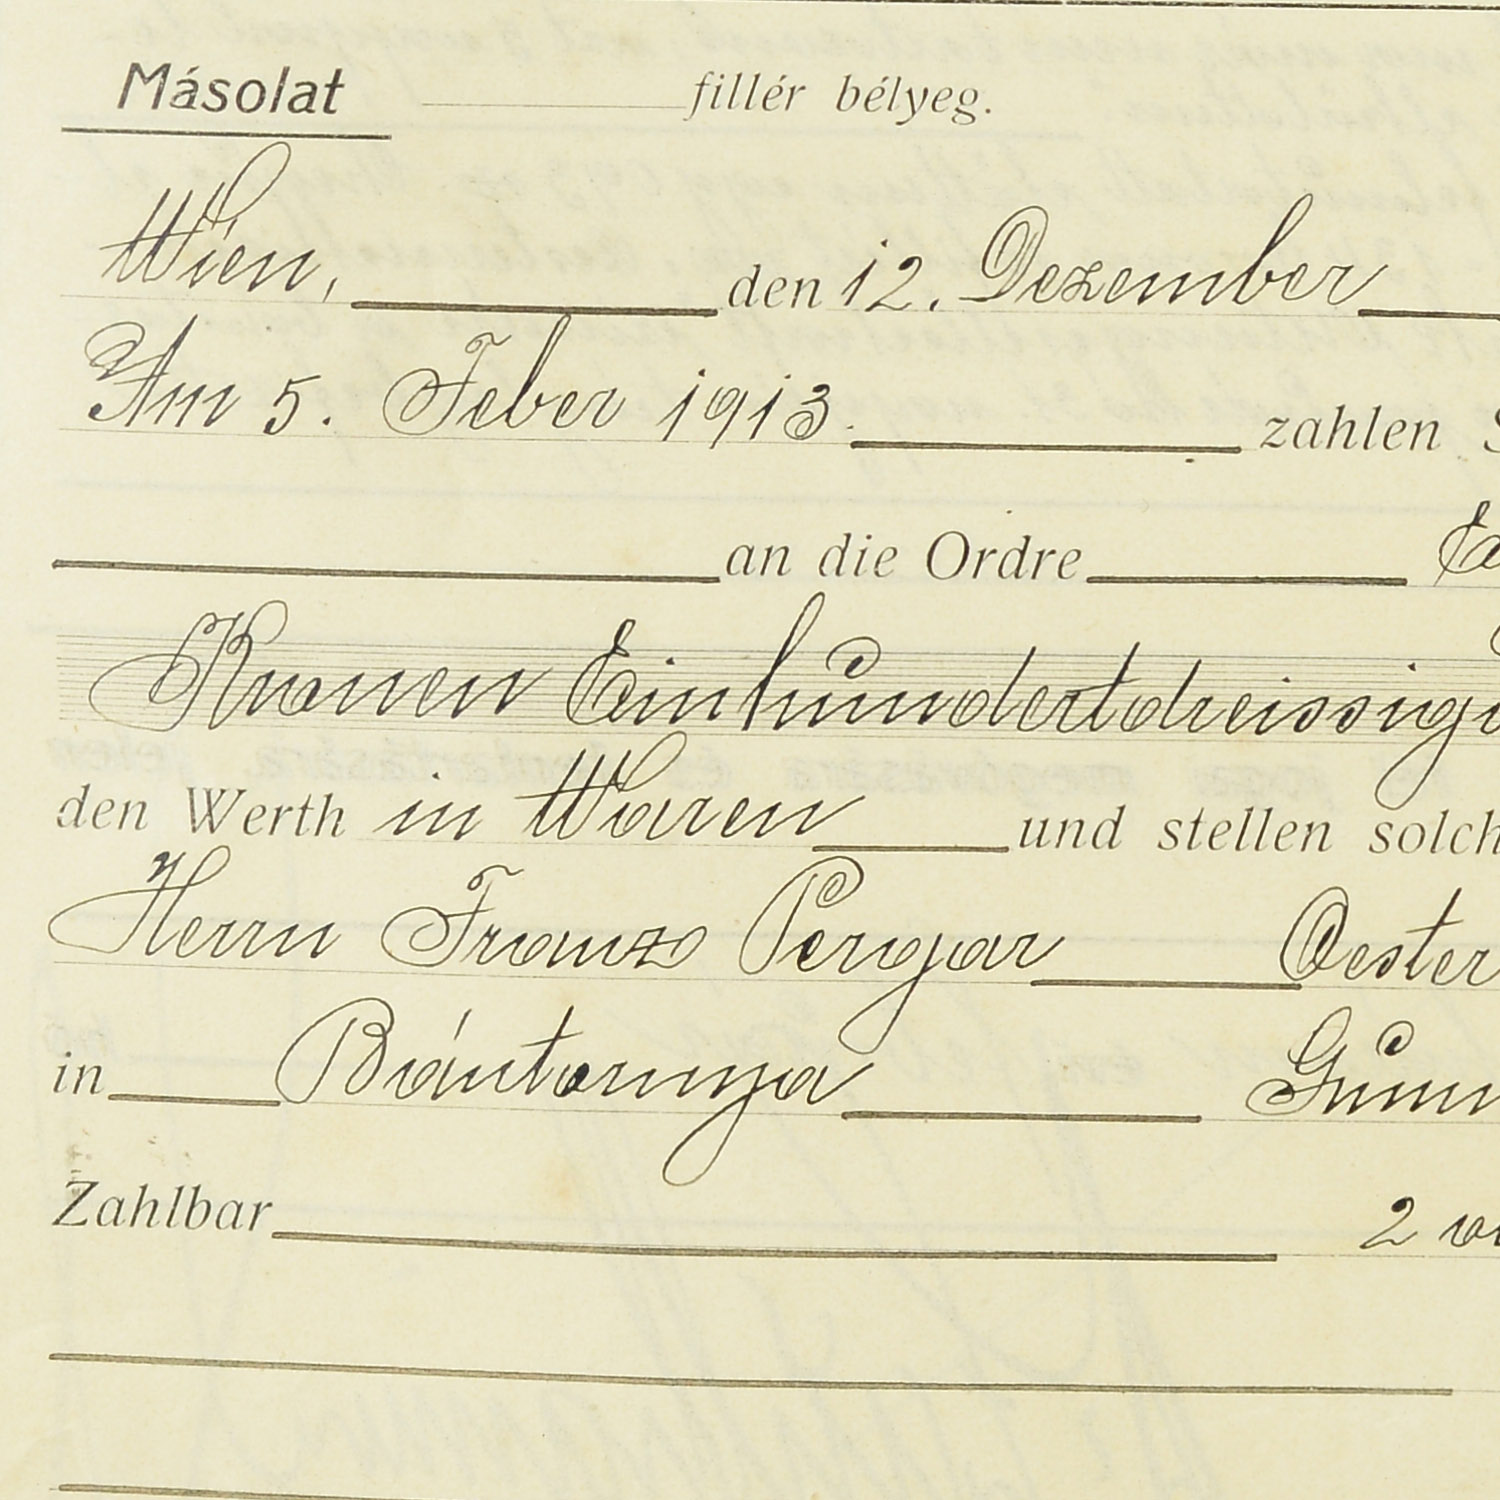 Másolat fillér bélyeg.
Wien, den 12. Dezember
Am 5. Feber 1913. zahlen S
an die Ordre
Kronen Einhundertdreissig
den Werth in Waren und stellen solch
Herrn Franz Pergar Oester
in Biántornya Gum
Zahlbar 2